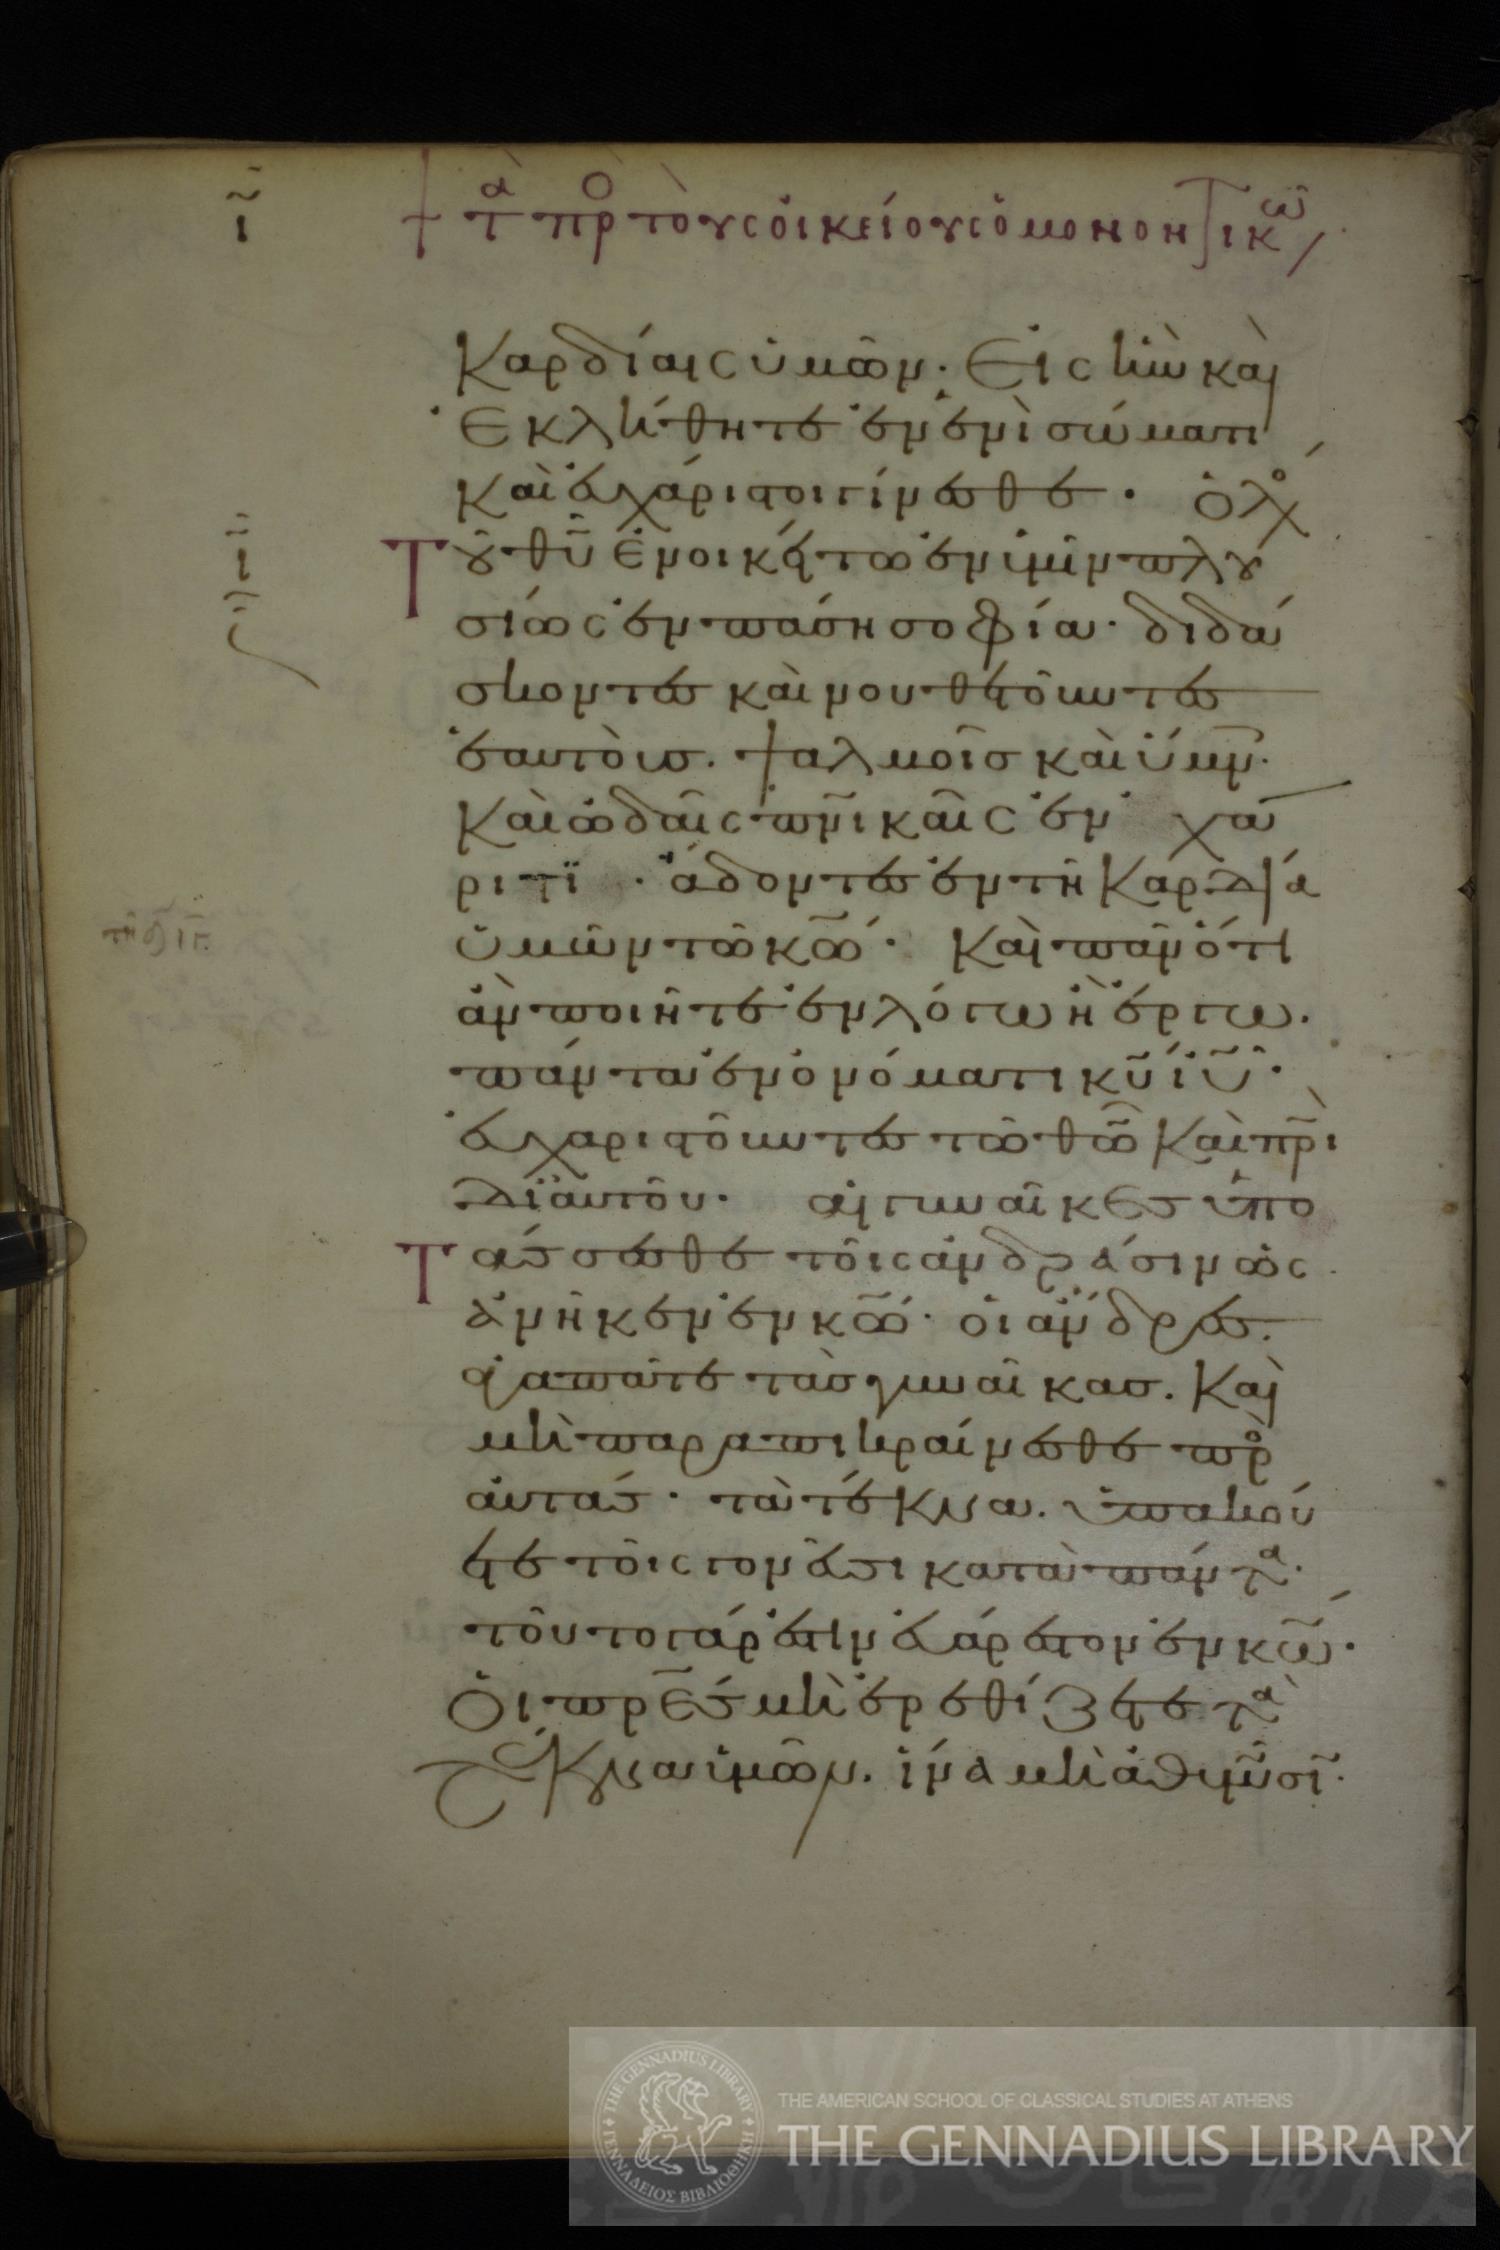 ῑ
τὰ πρὸ τοὺς οἰκείους ὁμονοητικῶ
Καρδίαις ὑμῶν· Εἰς ἣν καὶ
Ἐκλήθητε ἐν ἑνὶ σώματι
καὶ εὐχάριστοι γίνεσθε· ὁ λό
Τοῦ θῦ ἐνοικείτω ἐν ὑμῖν πλου
σίως ἐν πάσῃ σοφία· διδά
σκοντες καὶ νουθετοῦντες
ἑαυτοῖς. ψαλμοῖς καὶ ὕμν·
Καὶ ὠδαῖς πνικαῖς ἐν χά
ριτϊ · ἄδοντες ἐν τῆ Καρδία
ὑμῶν τῶ κω· Καὶ πᾶν ὅτι
ἂν ποιῆτε ἐν λόγω ἢ ἔργω.
πάντα ἐν ὀνόματι κυ ιυ·
εὐχαριστοῦντες τῶ θῶ Καὶ πρι
δϊ αὐτοῦ· αἱ γυναῖκες ὑπο
Τάσσεσθε τοῖς ἀνδράσιν ὡς
ἀνῆκεν ἐν κω· οἱ ἄνδρες.
ἀγαπᾶτε τὰς γυναῖκας. Καὶ
μὴ παραπικραίνεσθε πρ
αὐτάς· τὰ τέκνα. ὑπακού
ετε τοῖς γονεῦσι κατὰ πάντα·
τοῦτο γάρ ἐστιν εὐάρεστον ἐν κω·
Οἱ πρες μὴ ἐρεθίζετε τὰ
τέκνα ὑμῶν. ἵνα μὴ ἀθυμῶσι·
THE GENNADIUS LIBRARY
ΓΕΝΝΑΔΕΙΟΣ ΒΙΒΛΙΟΘΗΚΗ
THE AMERICAN SCHOOL OF CLASSICAL STUDIES AT ATHENS
THE GENNADIUS LIBRARY